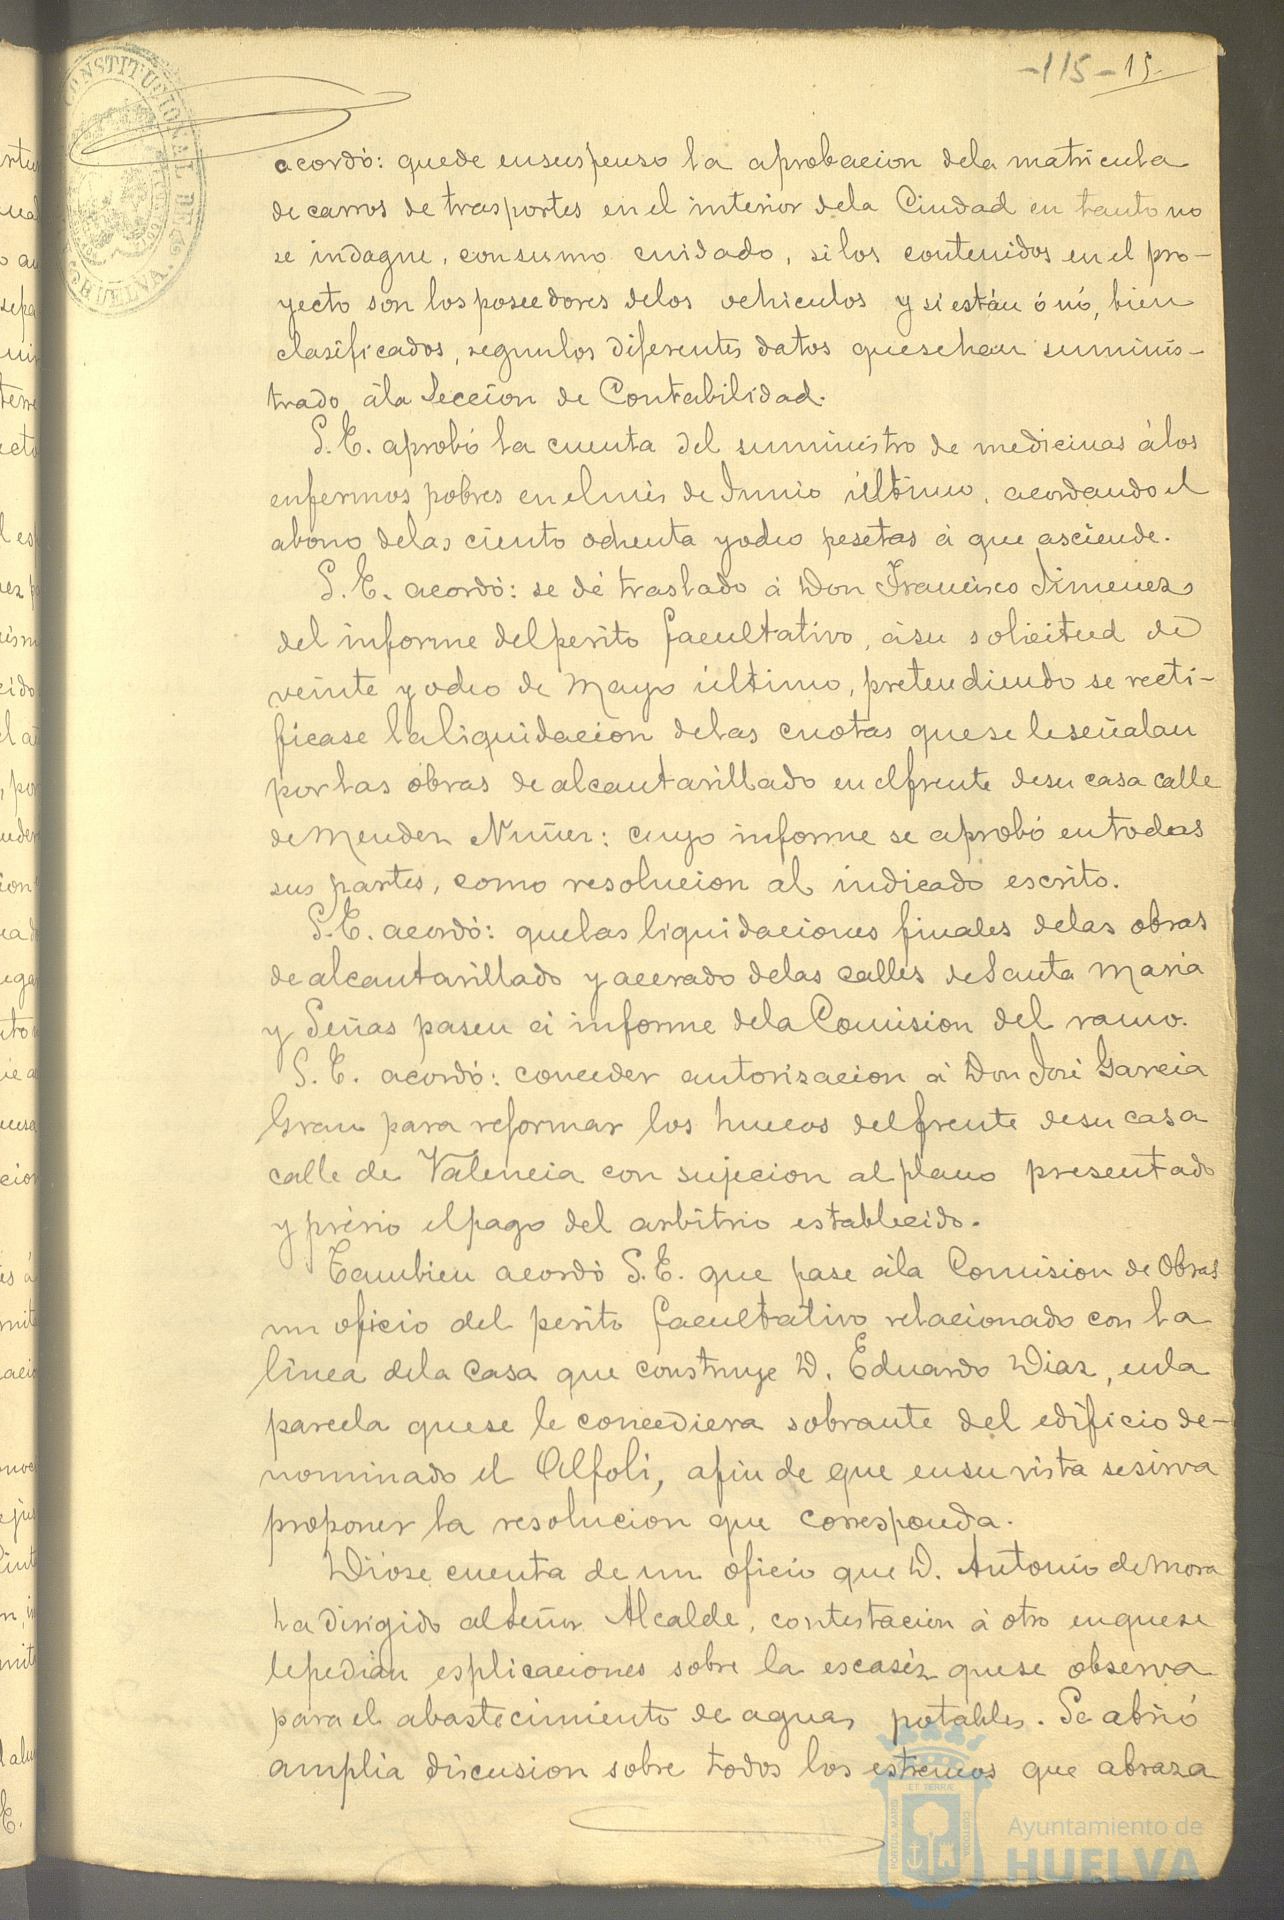 -115- 15
CONSTITUCIONAL DE
HUELVA
acordó: quede ensuspenso la aprobacion dela matricula
de carros de trasportes en el interior dela Ciudad en tanto no
se indague, consumo cuidado, si los contenidos en el pro-
yecto son los poseedores delos vehiculos y si están ó nó, bien
clasificados, segunlos diferentes datos quesehan suminis-
trado ála Seccion de Contabilidad.
S. E. aprobó la cuenta del suministro de medicinas álos
enfermos pobres en elmes de Junio último, acordando el
abono delas ciento ochenta yocho pesetas á que asciende.
S. E. acordó: se dé traslado á Don Francisco Jimenez
del informe delperito facultativo, ásu solicitud de
veinte y ocho de Mayo último, pretendiendo se recti-
ficase laliquidacion delas cuotas quese leseñalan
porlas obras de alcantarillado en elfrente desu casa calle
de Mendez Nuñez: cuyo informe se aprobó entodas
sus partes, como resolucion al indicado escrito.
S. E. acordó: quelas liquidaciones finales delas obras
de alcantarillado y acerado delas calles deSanta Maria
y Señas pasen á informe dela Comision del ramo.
S. E. acordó: conceder autorizacion á Don José Garcia
Grau para reformar los huecos delfrente desu casa
calle de Valencia con sujecion al plano presentado
y prévio elpago del arbitrio establecido.
Tambien acordó S. E. que pase ála Comision de Obras
un oficio del perito facultativo relacionado con la
línea dela casa que construye D. Eduardo Diaz, enla
parcela quese le concediera sobrante del edificio de-
nominado el Alfoli, afin de que ensu vista sesirva
proponer la resolucion que corresponda.
Dióse cuenta de un oficio que D. Antonio de Mora
ha dirigido alSeñor Alcalde, contestacion á otro enquese
lepedian esplicaciones sobre la escaséz quese observa
para el abastecimiento de aguas potables. Se abrió
amplia discusion sobre todos los estremos que abraza
Ayuntamiento de
HUELVA